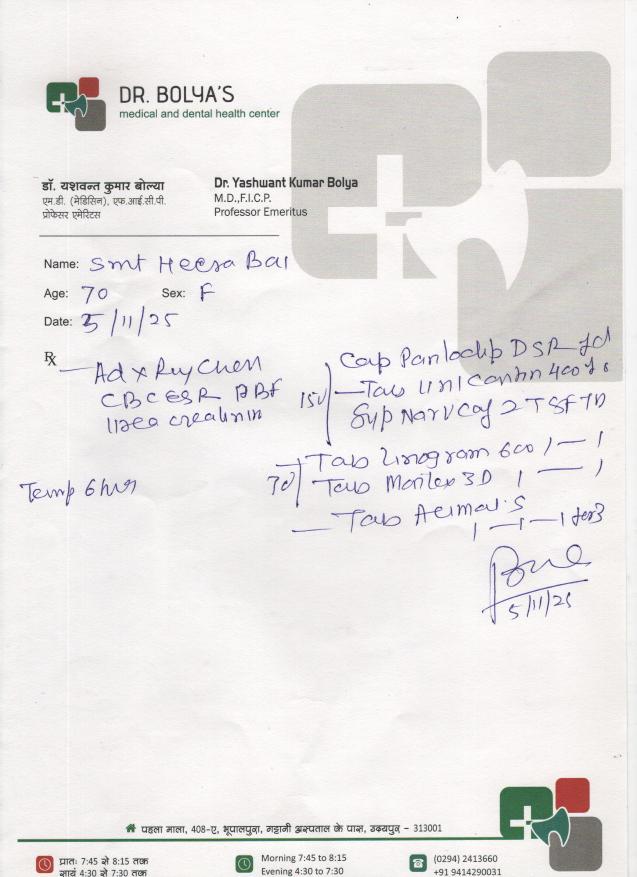 DR. BOLYA'S
medical and dental health center
डॉ. यशवन्त कुमार बोल्या
एम.डी. (मेडिसिन), एफ.आई.सी.पी.
प्रोफेसर एमेरिटस
Dr. Yashwant Kumar Bolya
M.D.,F.I.C.P.
Professor Emeritus
Name: Smt Heera Bai
Age: 70 Sex: F
Date: 5/11/25
℞
Adv
CBC ESR
Urea creatinin
Temp 6 hr
Cap DSR
15d Tab Unicontin 400
Syp 2 TSF TD
Tab 600 1 — 1
7d Tab 3D 1 — 1
Tab
1 — 1 — 1 for 3
5/11/25
पहला माला, 408-ए, भूपालपुरा, गट्टानी अस्पताल के पास, उदयपुर - 313001
प्रातः 7:45 से 8:15 तक
सायं 4:30 से 7:30 तक
Morning 7:45 to 8:15
Evening 4:30 to 7:30
(0294) 2413660
+91 9414290031